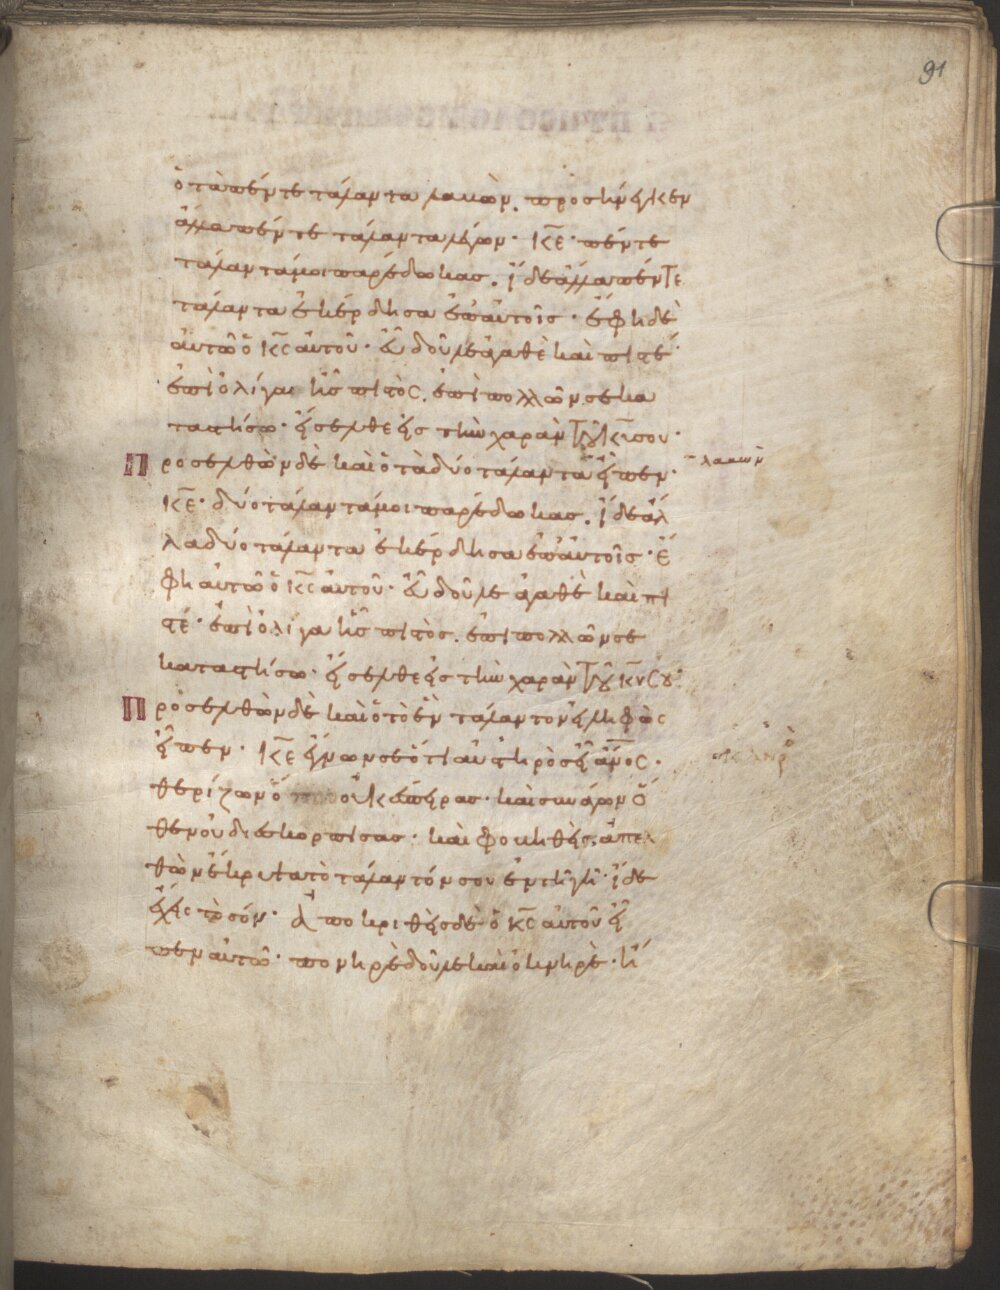 91
ὁ τὰ πέντε τάλαντα λαβὼν. προσήνεγκεν
ἄλλα πέντε τάλαντα λέγων· κ̅ε̅· πέντε
τάλαντά μοι παρέδωκας. ἴδε ἄλλα πέντε
τάλαντα ἐκέρδησα ἐπ' αὐτοῖς· ἔφη δὲ
αὐτῶ ὁ κ̅ς̅ αὐτοῦ· εὖ δοῦλε ἀγαθὲ καὶ πιστέ·
ἐπὶ ὀλίγα ἦς πιστὸς. ἐπὶ πολλῶν σε κα
ταστήσω· εἴσελθε εἰς τὴν χαρὰν τοῦ κ̅υ̅ σου·
Προσελθὼν δὲ καὶ ὁ τὰ δύο τάλαντα εἶπεν· λαβὼν
κ̅ε̅· δύο τάλαντά μοι παρέδωκας. ἴδε ἄλ
λα δύο τάλαντα ἐκέρδησα ἐπ' αὐτοῖς· ἔ
φη αὐτῶ ὁ κ̅ς̅ αὐτοῦ· εὖ δοῦλε ἀγαθὲ καὶ πι
στέ· ἐπὶ ὀλίγα ἦς πιστὸς. ἐπὶ πολλῶν σε
καταστήσω· εἴσελθε εἰς τὴν χαρὰν τοῦ κ̅υ̅ σου·
Προσελθὼν δὲ καὶ ὁ τὸ ἓν τάλαντον εἰληφὼς
εἶπεν· κ̅ε̅ ἔγνων σε ὅτι αὐστηρὸς εἶ α̅ν̅ο̅ς̅·
θερίζων ὅπου οὐκ ἔσπειρας· καὶ συνάγων ὅ
θεν οὐ διεσκόρπισας· καὶ φοβηθεὶς. ἀπελ
θὼν ἔκρυψα τὸ τάλαντόν σου ἐν τῆ γῆ· ἴδε
ἔχεις τὸ σόν· Ἀποκριθεὶς δὲ ὁ κ̅ς̅ αὐτοῦ εἶ
πεν αὐτῶ· πονηρὲ δοῦλε καὶ ὀκνηρὲ· ἤ